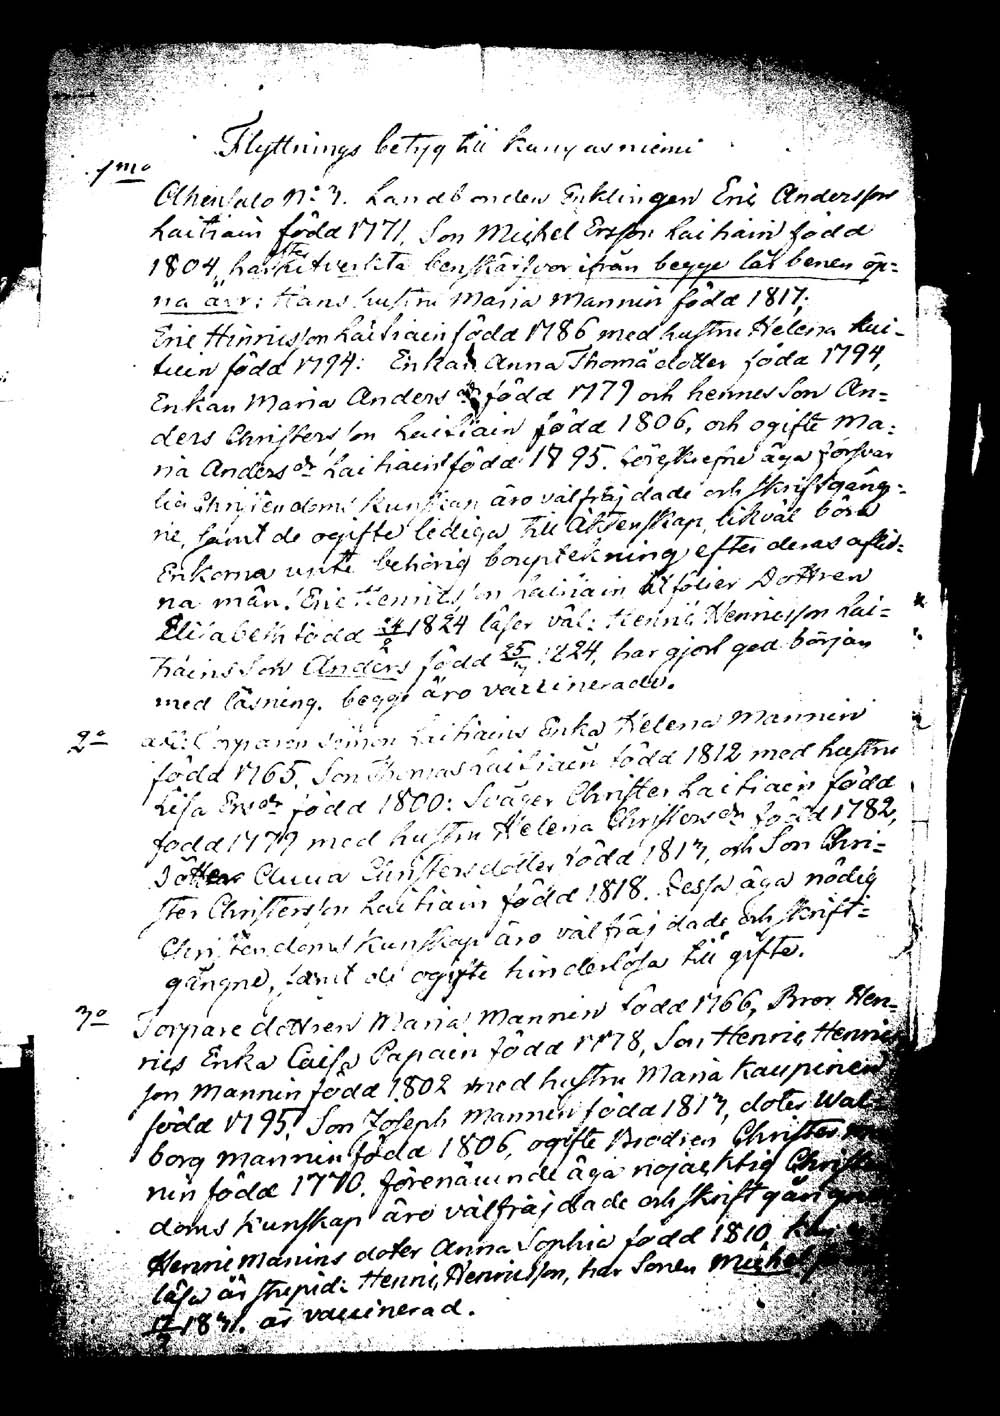 Flyttnings betyg till Kangasniemi
1mo
Ahensalo No 3. Landbonden Enklingen Eric Andersson
Laitiain född 1771, Son Michel Ersson Laitiain född
1804, har benskärfvor ifrån begge lår benen öp-
na är: Hans hustru Maria Mannin född 1817;
Eric Hinricsson Laitiain född 1786 med hustru Helena Kui-
tuin född 1794: Enkan Anna Thomædotter född 1794,
Enkan Maria Andersdr född 1779 och hennes Son An-
ders Christersson Laitiain född 1806, och ogifte Ma-
ria Andersdr Laitiain född 1795. äga försvar
lig Christendoms kunskap äro välfräjdade och skriftgång-
ne, samt de ogifte lediga till Äktenskap, likväl böra
Enkorna upte behörig bouptekning efter deras aflid-
na män. Eric Henricsson Laitiain åtföljer Dottren
Elisabeth född 1824 läser väl: Henric Henricsson Lai-
tiains Son Anders född 25 1824, har gjort god början
med läsning. begge äro vaccinerade.
2o
Simon Laitiains Enka Helena Mannin
född 1765. Son Thomas Laitiain född 1812 med hustru
Lisa Ersdr född 1800: Svåger Christer Laitiain född
född 1779 med hustru Helena Christersdr född 1782,
Dotter Anna Christersdotter född 1813, och Son Chri-
ster Christersson Laitiain född 1818. Dessa äga nödig
Christendoms kunskap äro välfräjdade och skrift-
gångne, samt de ogifte hinderlösa till gifte.
3o
Torpare dottren Maria Mannin född 1766, Bror Hen-
rics Enka Caisa Papain född 1778, Son Henric Henrics
son Mannin född 1802 med hustru Maria Kaupinen
född 1795. Son Joseph Mannin född 1813, doter Wal-
borg Mannin född 1806, ogifte Brodren Christer
nin född 1770. förenämnde äga nöjacktig Christen
doms kunskap äro välfräjdade och skriftgångne
Henric Manins doter Anna Sophia född 1810,
läsa är stupid: Henric Henricsson, har Sonen Michel
17 1831. är vaccinerad.